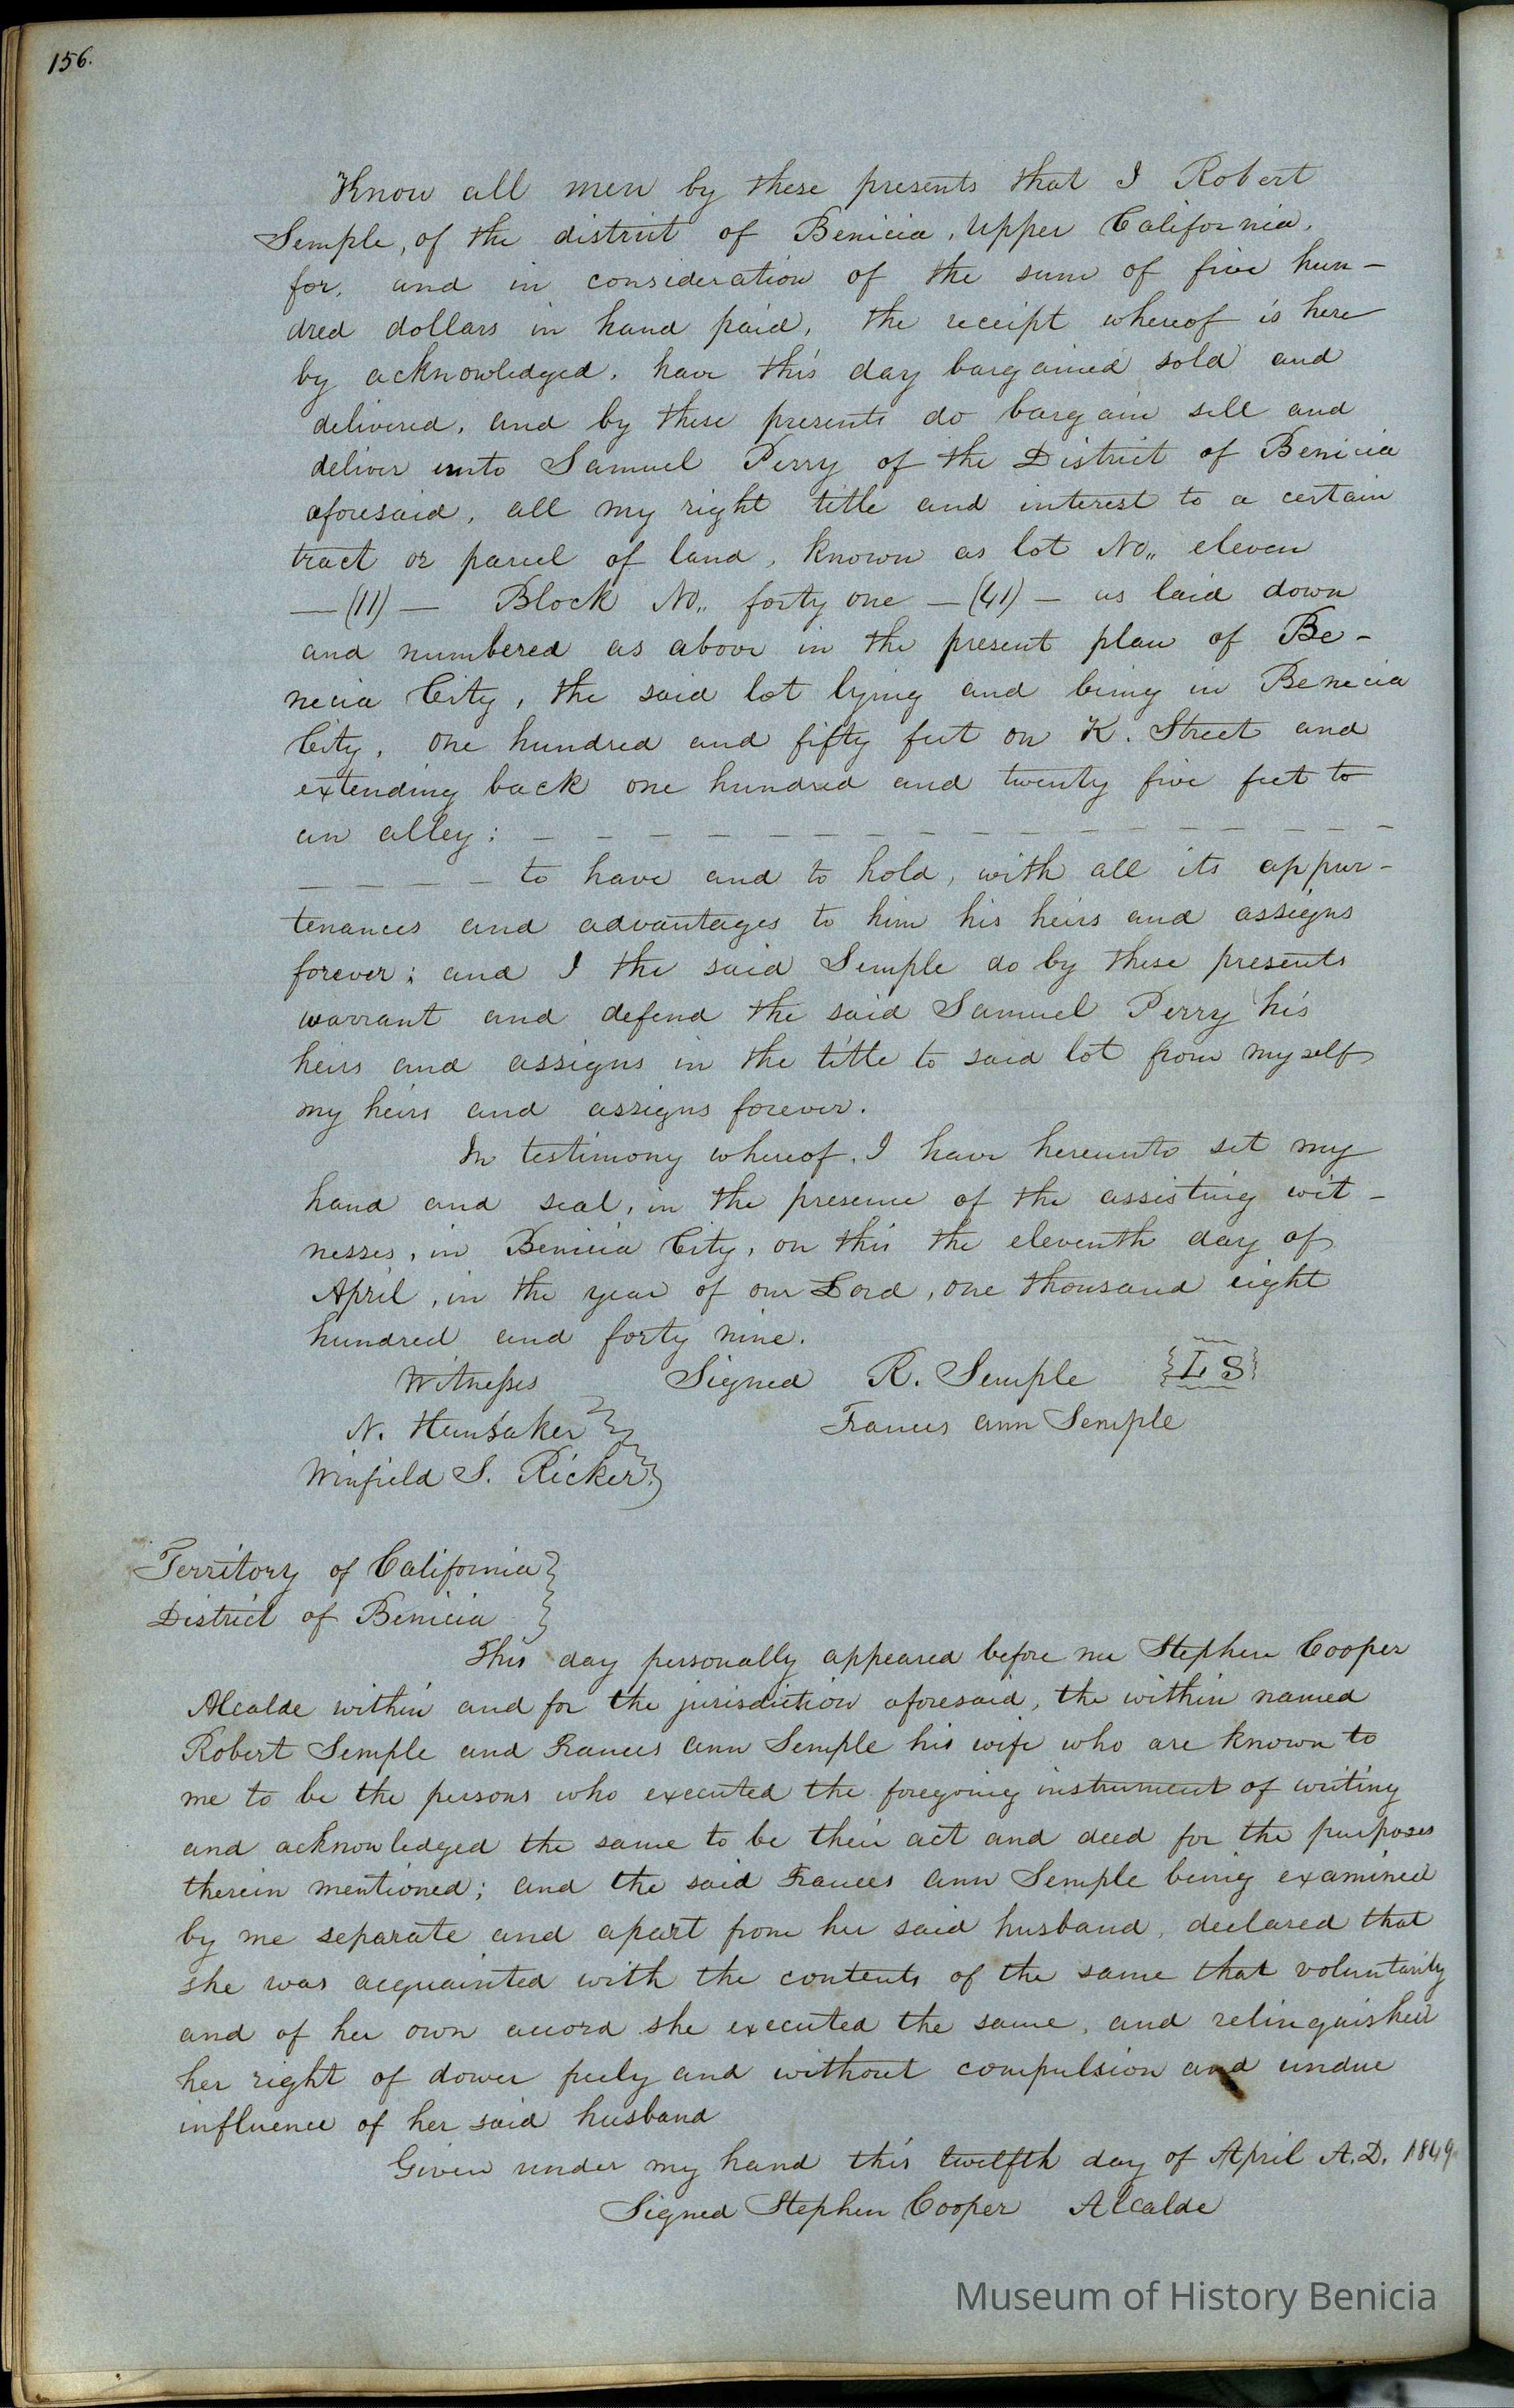 156.
Know all men by these presents that I Robert
Semple, of the district of Benicia, Upper California,
for, and in consideration of the sum of five hun-
dred dollars in hand paid, the receipt whereof is here
by acknowledged, have this day bargained sold and
delivered, and by these presents do bargain sell and
deliver unto Samuel Perry of the District of Benicia
aforesaid, all my right title and interest to a certain
tract or parcel of land, known as lot No,, eleven
— (11) — Block No,, forty one — (41) — as laid down
and numbered as above in the present plan of Be-
necia City, the said lot lying and being in Benecia
City, one hundred and fifty feet on K. Street and
extending back one hundred and twenty five feet to
an alley: — — — — — — — — — — — — — — — —
— — — — to have and to hold, with all its appur-
tenances and advantages to him his heirs and assigns
forever; and I the said Semple do by these presents
warrant and defend the said Samuel Perry his
heirs and assigns in the title to said lot from myself
my heirs and assigns forever.
In testimony whereof, I have hereunto set my
hand and seal, in the presence of the assisting wit-
nesses, in Benicia City, on this the eleventh day of
April, in the year of our Lord, one thousand eight
hundred and forty nine.
Witnesses Signed R. Semple {L S}
N. Hunsaker } Frances ann Semple
Winfield S. Ricker }
Territory of California }
District of Benicia }
This day personally appeared before me Stephen Cooper
Alcalde within and for the jurisdiction aforesaid, the within named
Robert Semple and Frances ann Semple his wife who are known to
me to be the persons who executed the foregoing instrument of writing
and acknowledged the same to be their act and deed for the purposes
therein mentioned; and the said Frances ann Semple being examined
by me separate and apart from her said husband, declared that
she was acquainted with the contents of the same that voluntarily
and of her own accord she executed the same, and relinquished
her right of dower freely and without compulsion and undue
influence of her said husband
Given under my hand this twelfth day of April A.D. 1849.
Signed Stephen Cooper Alcalde
Museum of History Benicia